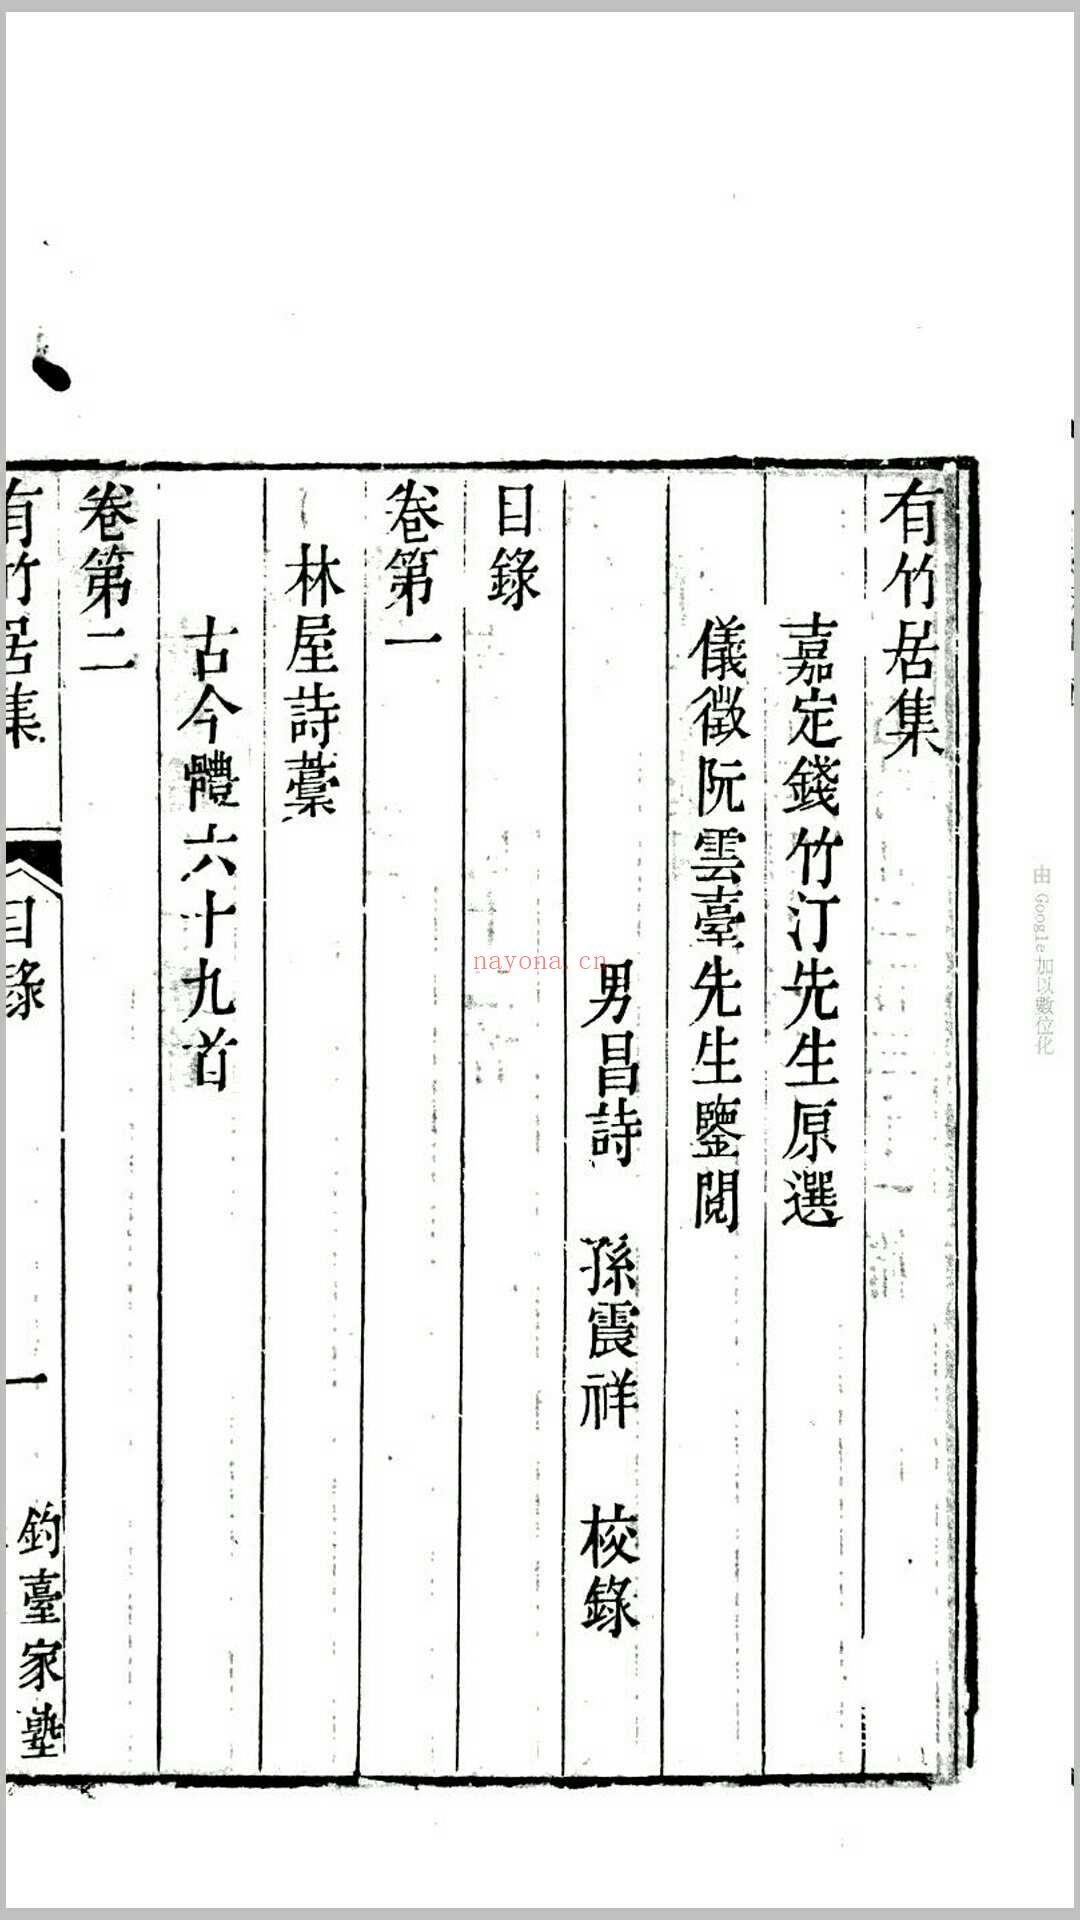 有竹居集
嘉定錢竹汀先生原選
儀徵阮雲臺先生鑒閱
男昌詩 孫震祥 校錄
目錄
卷第一
林屋詩藁
古今體六十九首
卷第二
有竹居集 目錄 一 鈞臺家塾
nayona.cn
由 Google 加以數位化